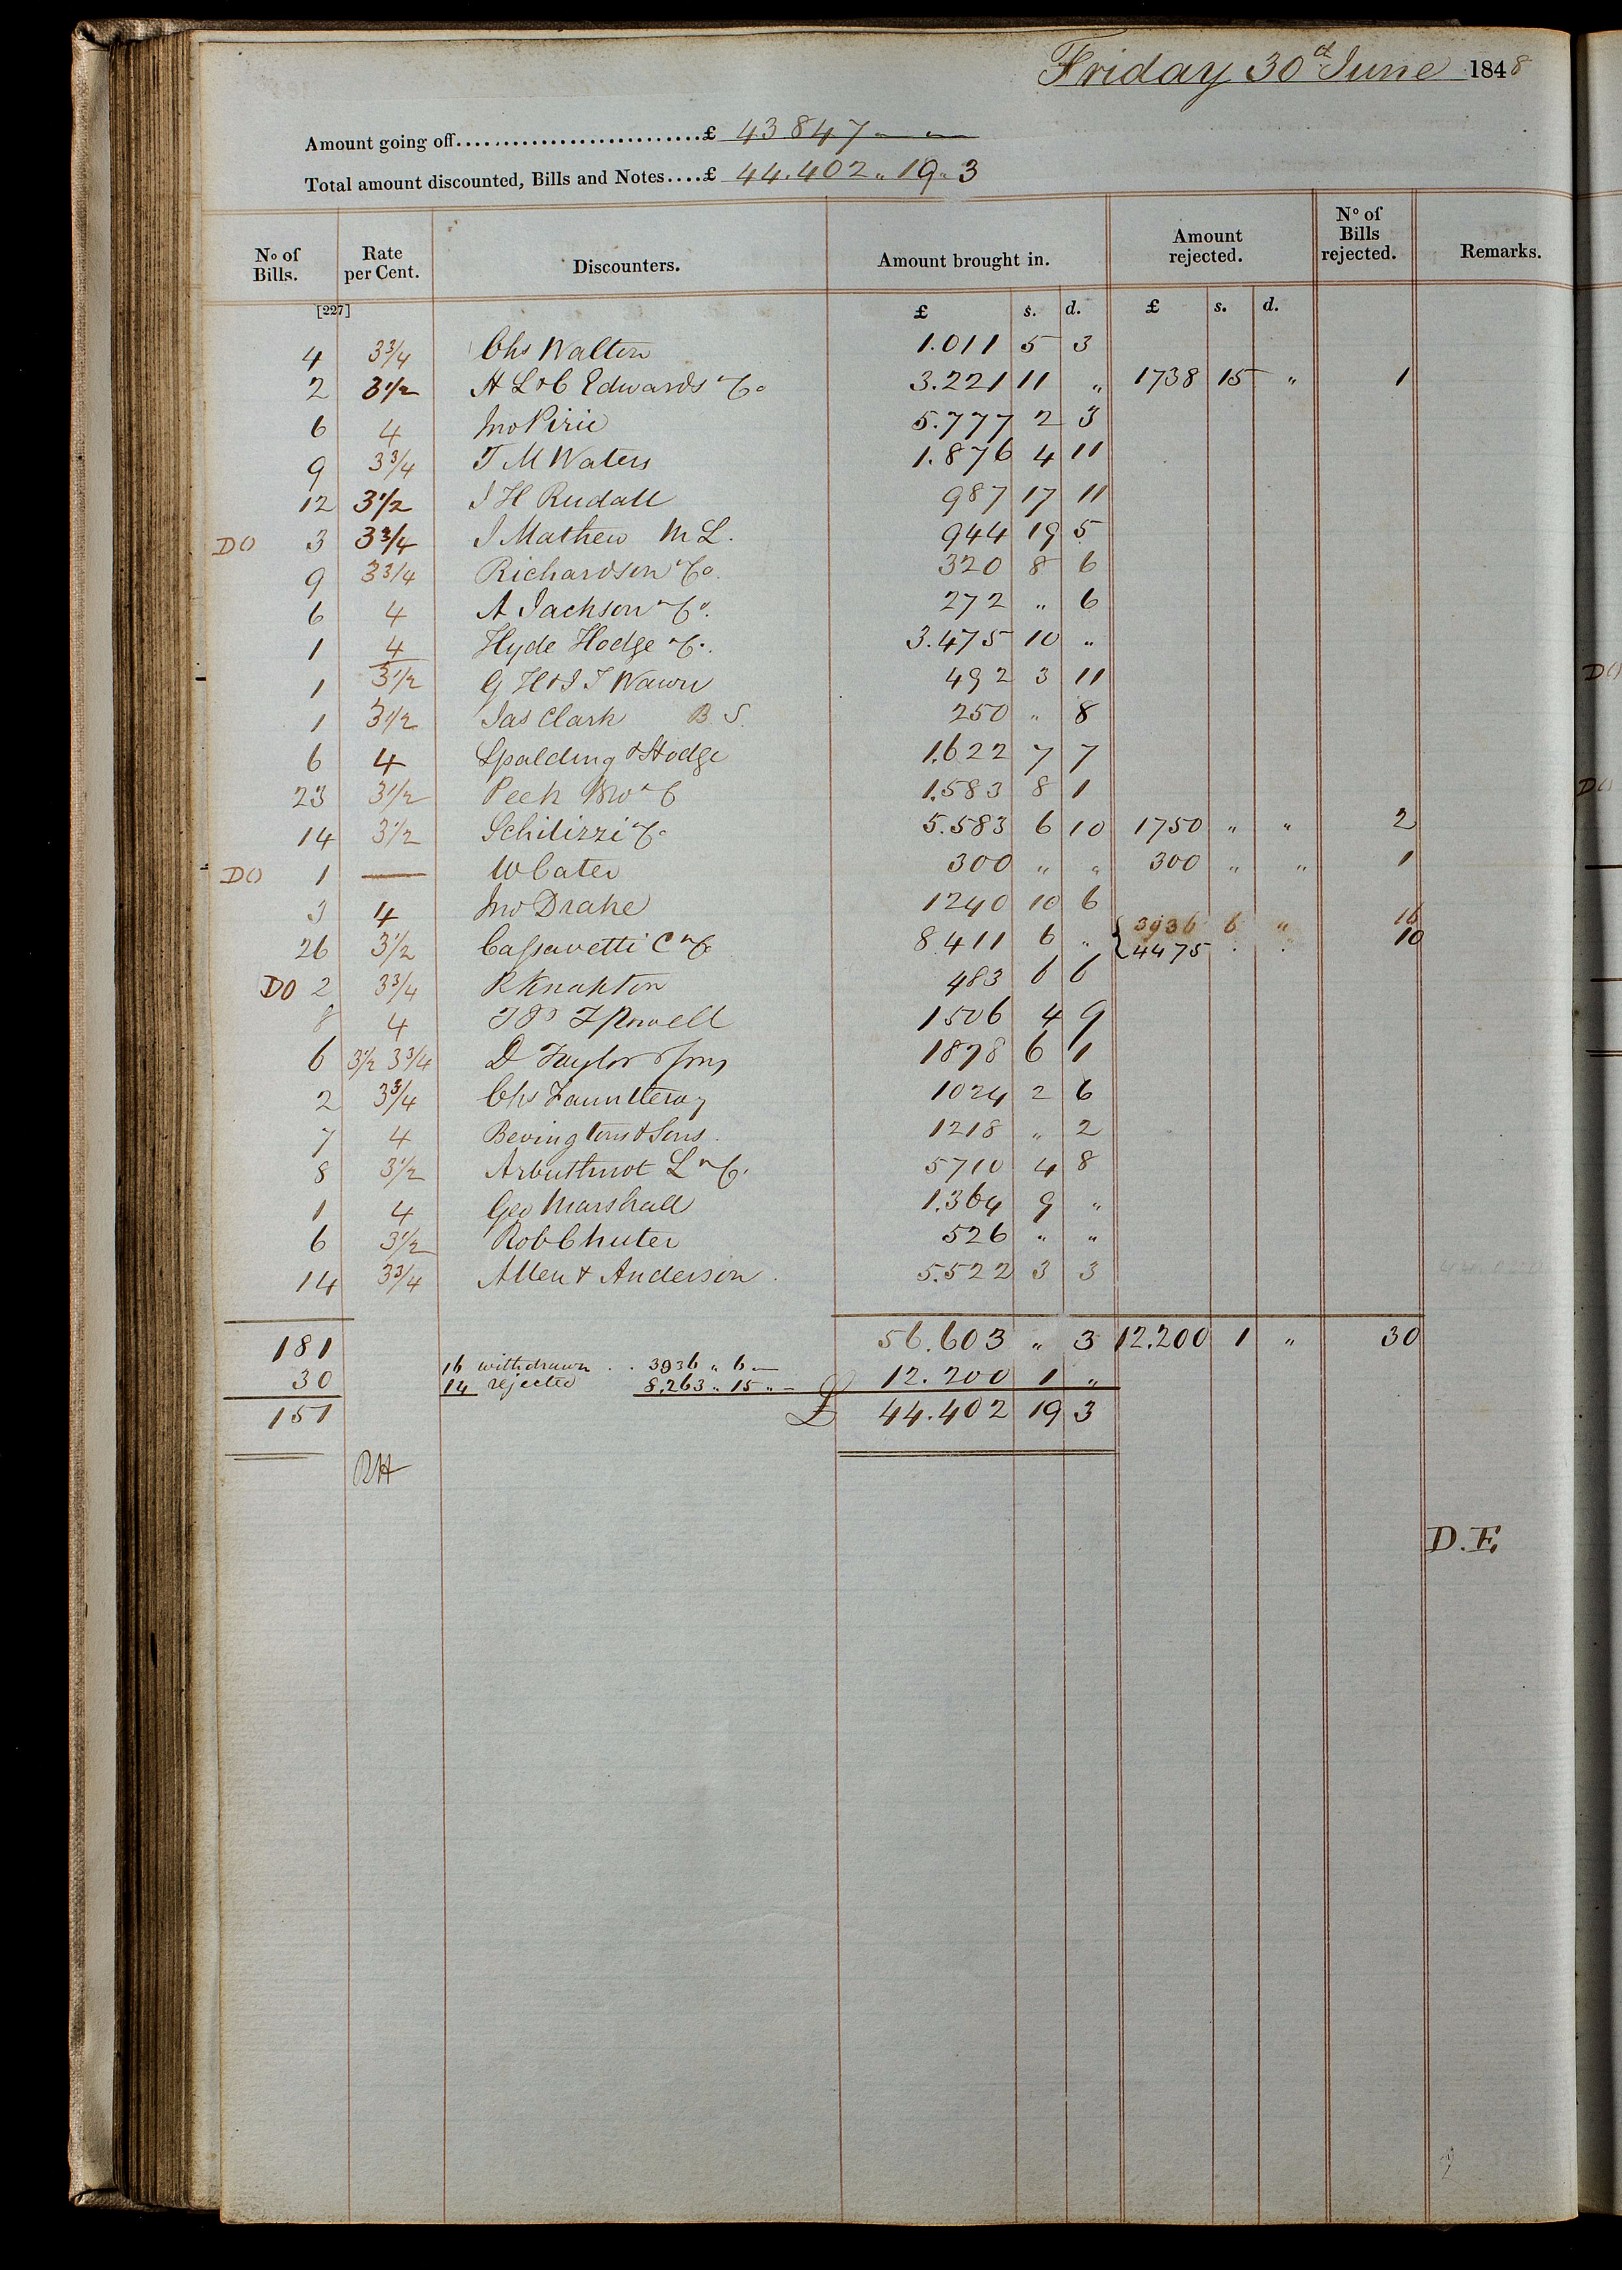 Friday 30th June 1848
Amount going off...........................£ 43.847 " — " —
Total amount discounted, Bills and Notes....£ 44.402 " 19 " 3
No of Bills. Rate per Cent. Discounters. Amount brought in. Amount rejected. No of Bills rejected. Remarks.
[227] £ s. d. £ s. d.
4 3¾ Chs Walton 1.011 5 3
2 3½ H L & C Edwards & Co 3.221 11 " 1738 15 " 1
6 4 Jno Pirie 5.777 2 3
9 3¾ T M Waters 1.876 4 11
12 3½ J H Rudall 987 17 11
DO 3 3¾ J Mathew M L. 944 19 5
9 3¾ Richardson & Co. 320 8 6
6 4 A Jackson & Co. 272 " 6
1 4 Hyde Hodge & Co. 3.475 10 "
1 3½ G H & J T Wawn 492 3 11
1 3½ Jas Clark B S. 250 " 8
6 4 Spalding & Hodge 1.622 7 7
23 3½ Peek Bro & C 1.583 8 1
14 3½ Schilizzi & Co 5.583 6 10 1750 " " 2
DO 1 — W Cater 300 " " 300 " " 1
3 4 Jno Drake 1240 10 6
26 3½ Cassavetti C & Co 8 411 6 " { 3936 6 " 16
4475 . . 10
DO 2 3¾ R Knakton 483 6 6
8 4 Powell 1506 4 9
6 3½ 3¾ D Taylor & Sons 1878 6 1
2 3¾ Chs Fauntleroy 1024 2 6
7 4 Bevingtons & Sons. 1218 " 2
8 3½ Arbuthnot L & Co. 5710 4 8
1 4 Geo Marshall 1.364 9 "
6 3½ Rob Chuter 526 " "
14 3¾ Allen & Anderson. 5.522 3 3
181 56.603 " 3 12.200 1 " 30
30 16 withdrawn . . 3936 " 6 — 12.200 1 "
14 rejected 8,263 " 15 " —
151 £ 44.402 19 3
RH
D.F.